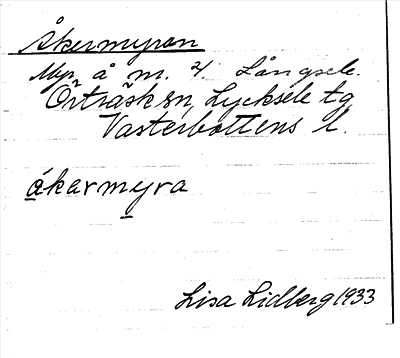 Åkermyran
Myr å m. 4. Långsele.
Örträsk sn, Lycksele tg
Västerbottens l.
ákarmyra
Lisa Lidberg 1933